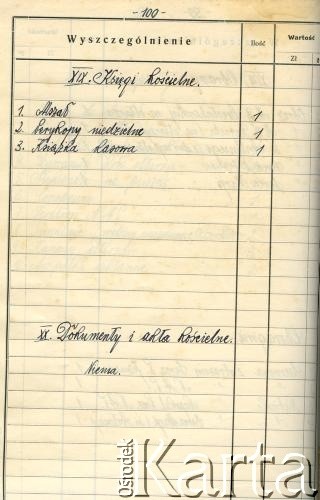 - 100 -
Wyszczególnienie Ilość Wartość
Zł
XIX. Księgi kościelne.
1. Mszał 1
2. Perykopy niedzielne 1
3. Książka kasowa 1
XX. Dokumenty i akta kościelne.
Niema.
Ośrodek Karta